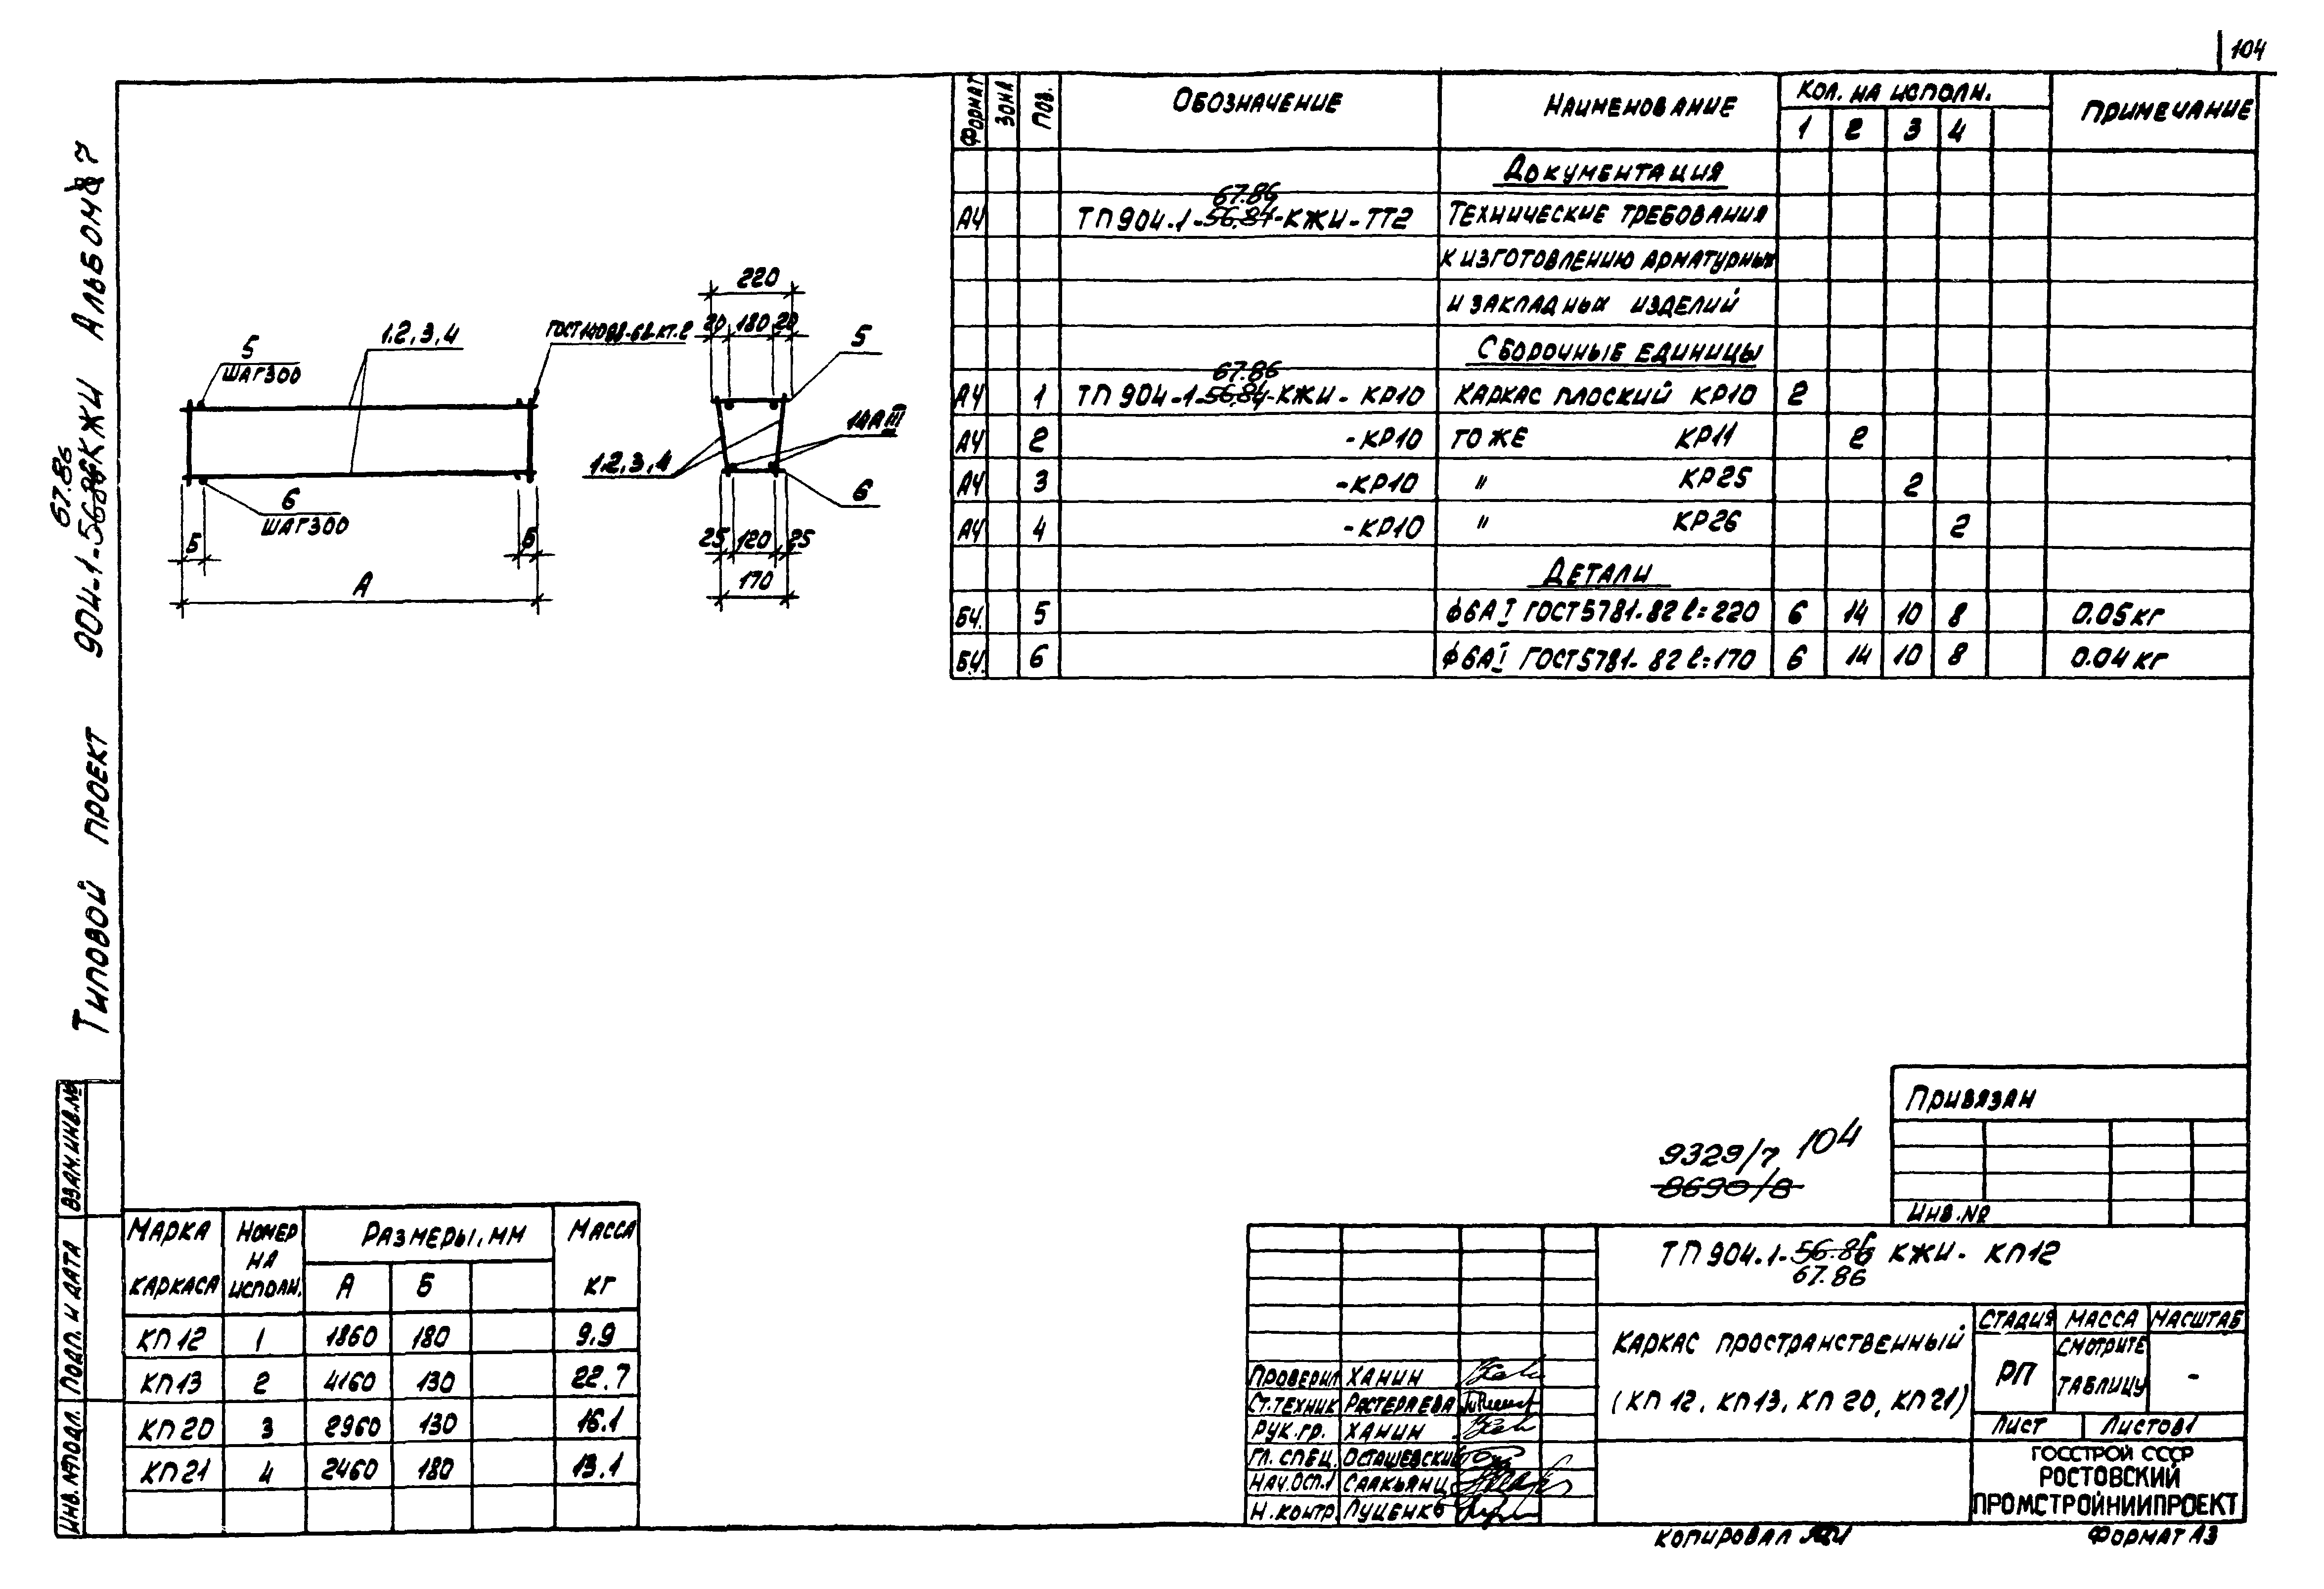 104
Типовой проект 904-1-56.86 КЖИ Альбом 8 7
67.86
Формат Зона Поз. Обозначение Наименование Кол. на исполн. Примечание
1 2 3 4
Документация
67.86
А4 ТП 904-1-56.84-КЖИ-ТТ2 Технические требования
к изготовлению арматурных
и закладных изделий
Сборочные единицы
67.86
А4 1 ТП 904-1-56.84-КЖИ-КР10 Каркас плоский КР10 2
А4 2 -КР10 То же КР11 2
А4 3 -КР10 " КР25 2
А4 4 -КР10 " КР26 2
Детали
Б4. 5 ф6АI ГОСТ 5781-82 l=220 6 14 10 8 0.05 кг
Б4. 6 ф6АI ГОСТ 5781-82 l=170 6 14 10 8 0.04 кг
5
шаг 300
1,2,3,4
ГОСТ 14098-68-КТ-2
6
шаг 300
Б
Б
А
220
20 180 20
5
14АIII
1,2,3,4
6
25 120 25
170
Взам. инв. №
Подп. и дата
Инв. № подл.
Марка каркаса Номер на исполн. Размеры, мм Масса кг
А Б
КП12 1 1860 180 9.9
КП13 2 4160 130 22.7
КП20 3 2960 130 16.1
КП21 4 2460 180 13.1
9329/7 104
8690/8
Привязан
Инв. №
ТП 904-1-56.86 КЖИ- КП12
67.86
Каркас пространственный
(КП 12, КП 13, КП 20, КП 21)
Стадия Масса Масштаб
РП Смотрите таблицу -
Лист Листов 1
Проверил Ханин
Ст. техник Растеряева
Рук. гр. Ханин
Гл. спец. Осташевский
Нач. осп. 1 Саакьянц
Н. контр. Луценко
ГОССТРОЙ СССР
РОСТОВСКИЙ
ПРОМСТРОЙНИИПРОЕКТ
Копировал
Формат А3